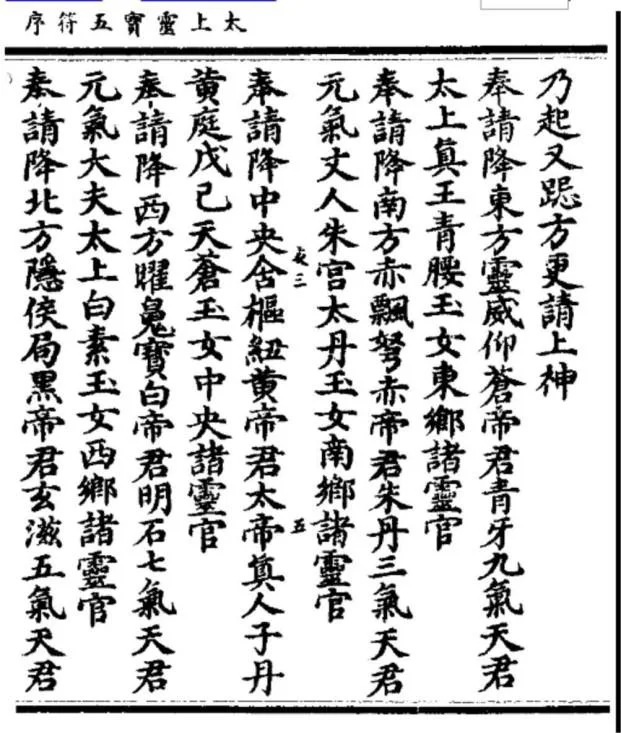 太上靈寶五符序
乃起又跽方更請上神
奉請降東方靈威仰蒼帝君青牙九氣天君
太上眞王青腰玉女東鄉諸靈官
奉請降南方赤飄弩赤帝君朱丹三氣天君
元氣丈人朱宮太丹玉女南鄉諸靈官
三 五
奉請降中央含樞紐黄帝君太帝眞人子丹
黄庭戊己天蒼玉女中央諸靈官
奉請降西方曜魄寶白帝君明石七氣天君
元氣大夫太上白素玉女西鄉諸靈官
奉請降北方隱侯局黑帝君玄滋五氣天君